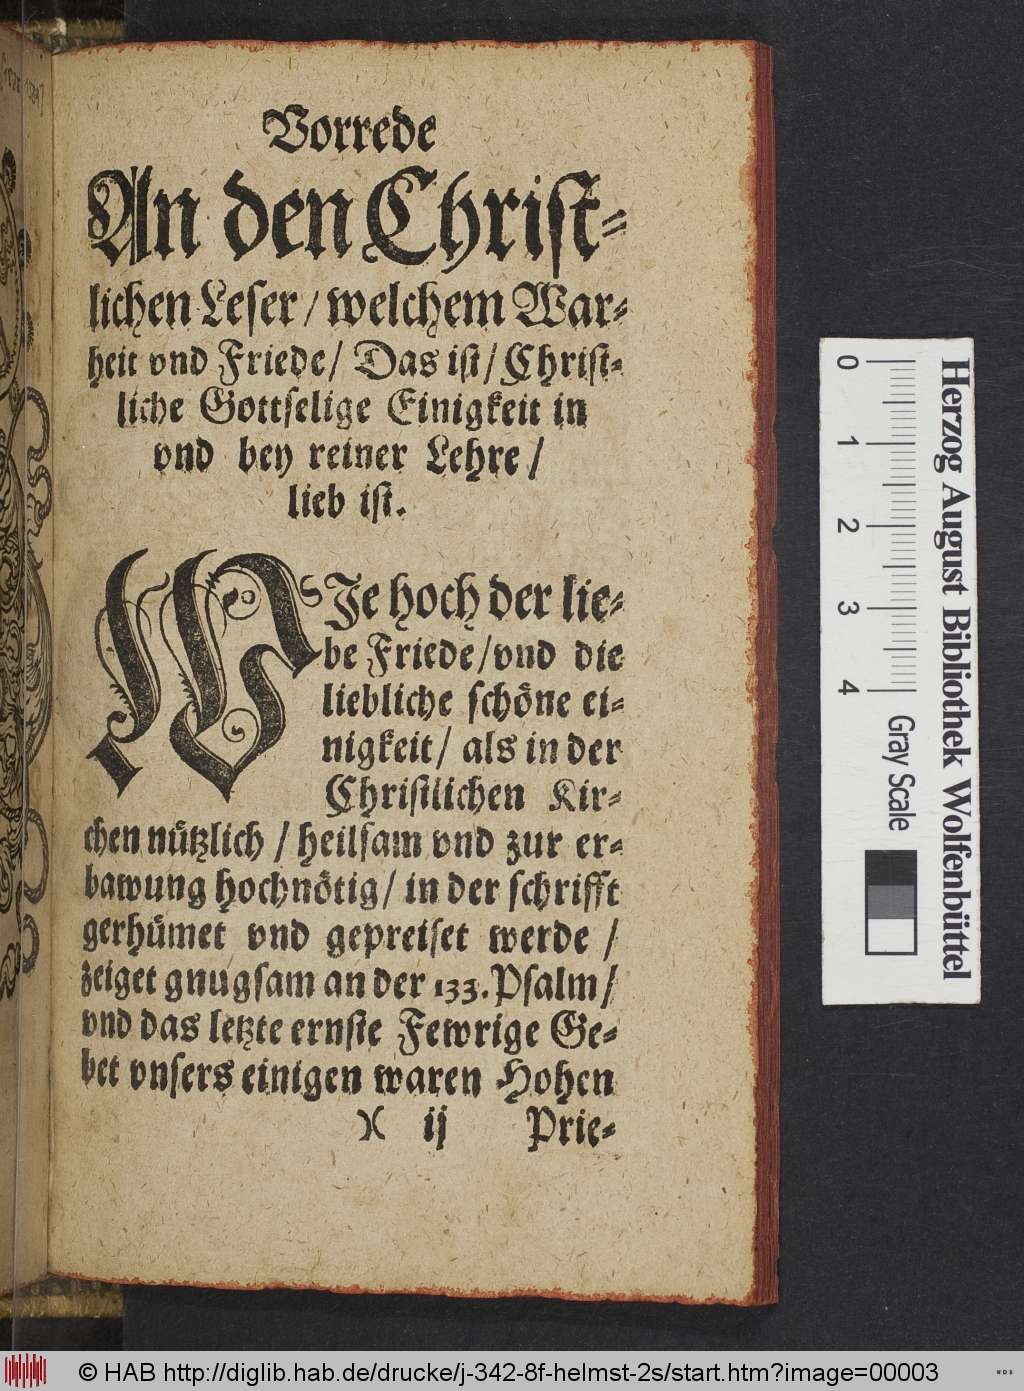 Vorrede
An den Christ-
lichen Leser / welchem War-
heit vnd Friede / Das ist / Christ-
liche Gottselige Einigkeit in
vnd bey reiner Lehre /
lieb ist.
WJe hoch der lie-
be Friede / vnd die
liebliche schöne ei-
nigkeit / als in der
Christlichen Kir-
chen nützlich / heilsam vnd zur er-
bawung hochnötig / in der schrifft
gerhümet vnd gepreiset werde /
zeiget gnugsam an der 133. Psalm /
vnd das letzte ernste Fewrige Ge-
bet vnsers einigen waren Hohen
)( ij Prie-
Herzog August Bibliothek Wolfenbüttel
0 1 2 3 4 Gray Scale
© HAB http://diglib.hab.de/drucke/j-342-8f-helmst-2s/start.htm?image=00003